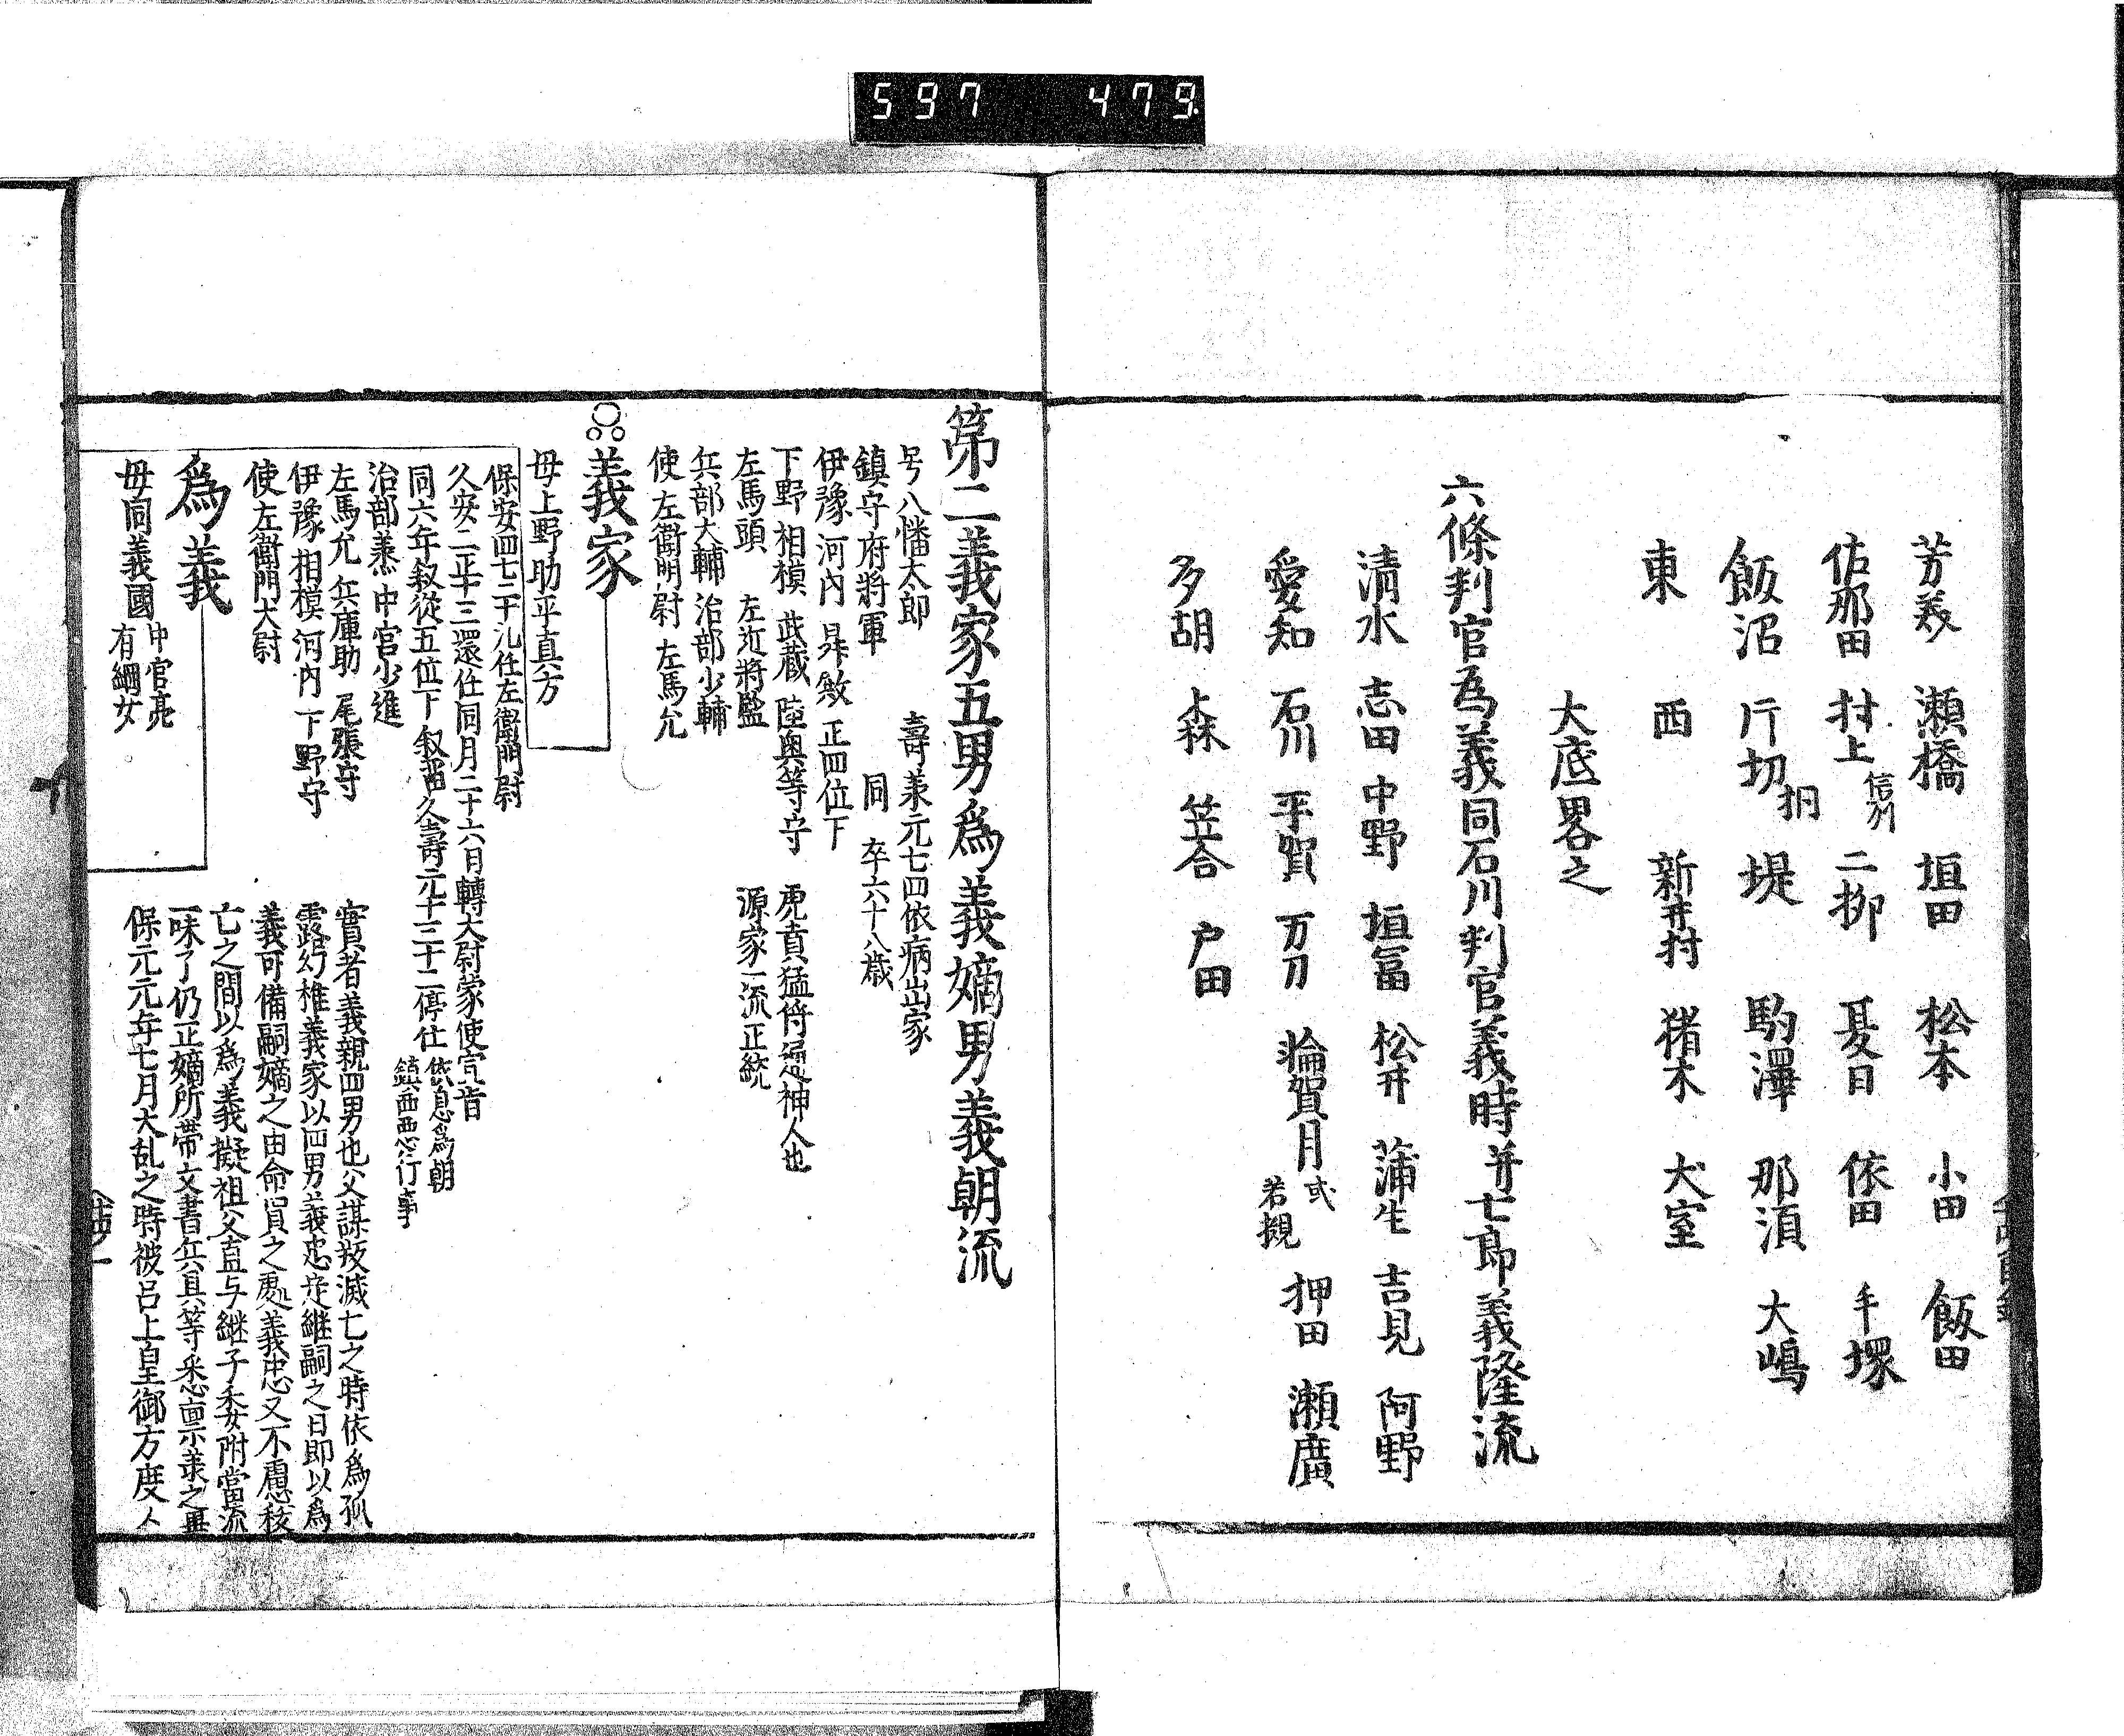 597 479
芳美 瀬橋 垣田 松本 小田 飯田
佐那田 村上 信列 二柳 夏日 依田 手塚
飯沼 片切 堤 駒澤 那須 大嶋
東 西 新井村 猪木 犬室
大底畧之
六條判官為義同石川判官義時并七郎義隆流
清水 志田 中野 垣冨 松井 蒲生 吉見 阿野
愛知 石川 平賀 万刀 賀月 或 若槻 押田 瀬廣
多胡 森 笠合 戸田
第二義家五男爲義嫡男義朝流
号八幡太郎 壽永元七四依病出家
鎮守府將軍 同 卒六十八歳
伊豫 河内 昇殿 正四位下
下野 相模 武蔵 陸奥等守
左馬頭 左近將監 源家一流正統
兵部大輔 治部少輔
使 左衞門尉 左馬允
義家
母上野助平直方
保安四七二十九任左衞門尉
久安二正十三還任同月二十六日轉大尉蒙使宣旨
同六年叙從五位下 叙留 久壽元十三十二停任 依息爲朝 鎮西
治部丞 中宮少進
左馬允 兵庫助 尾張守
伊豫 相模 河内 下野守
使左衞門大尉
爲義
母同義國 中宮亮 有綱女
實者義親四男也父謀叛滅亡之時依爲孤
露幻稚義家以四男義忠定継嗣之日即以爲
義可備嗣嫡之由命置之處義忠又不慮
亡之間以爲義擬祖父直与継子委附當流
一味了仍正嫡所帶文書兵具等悉
保元元年七月大乱之時彼呂上皇御方度人